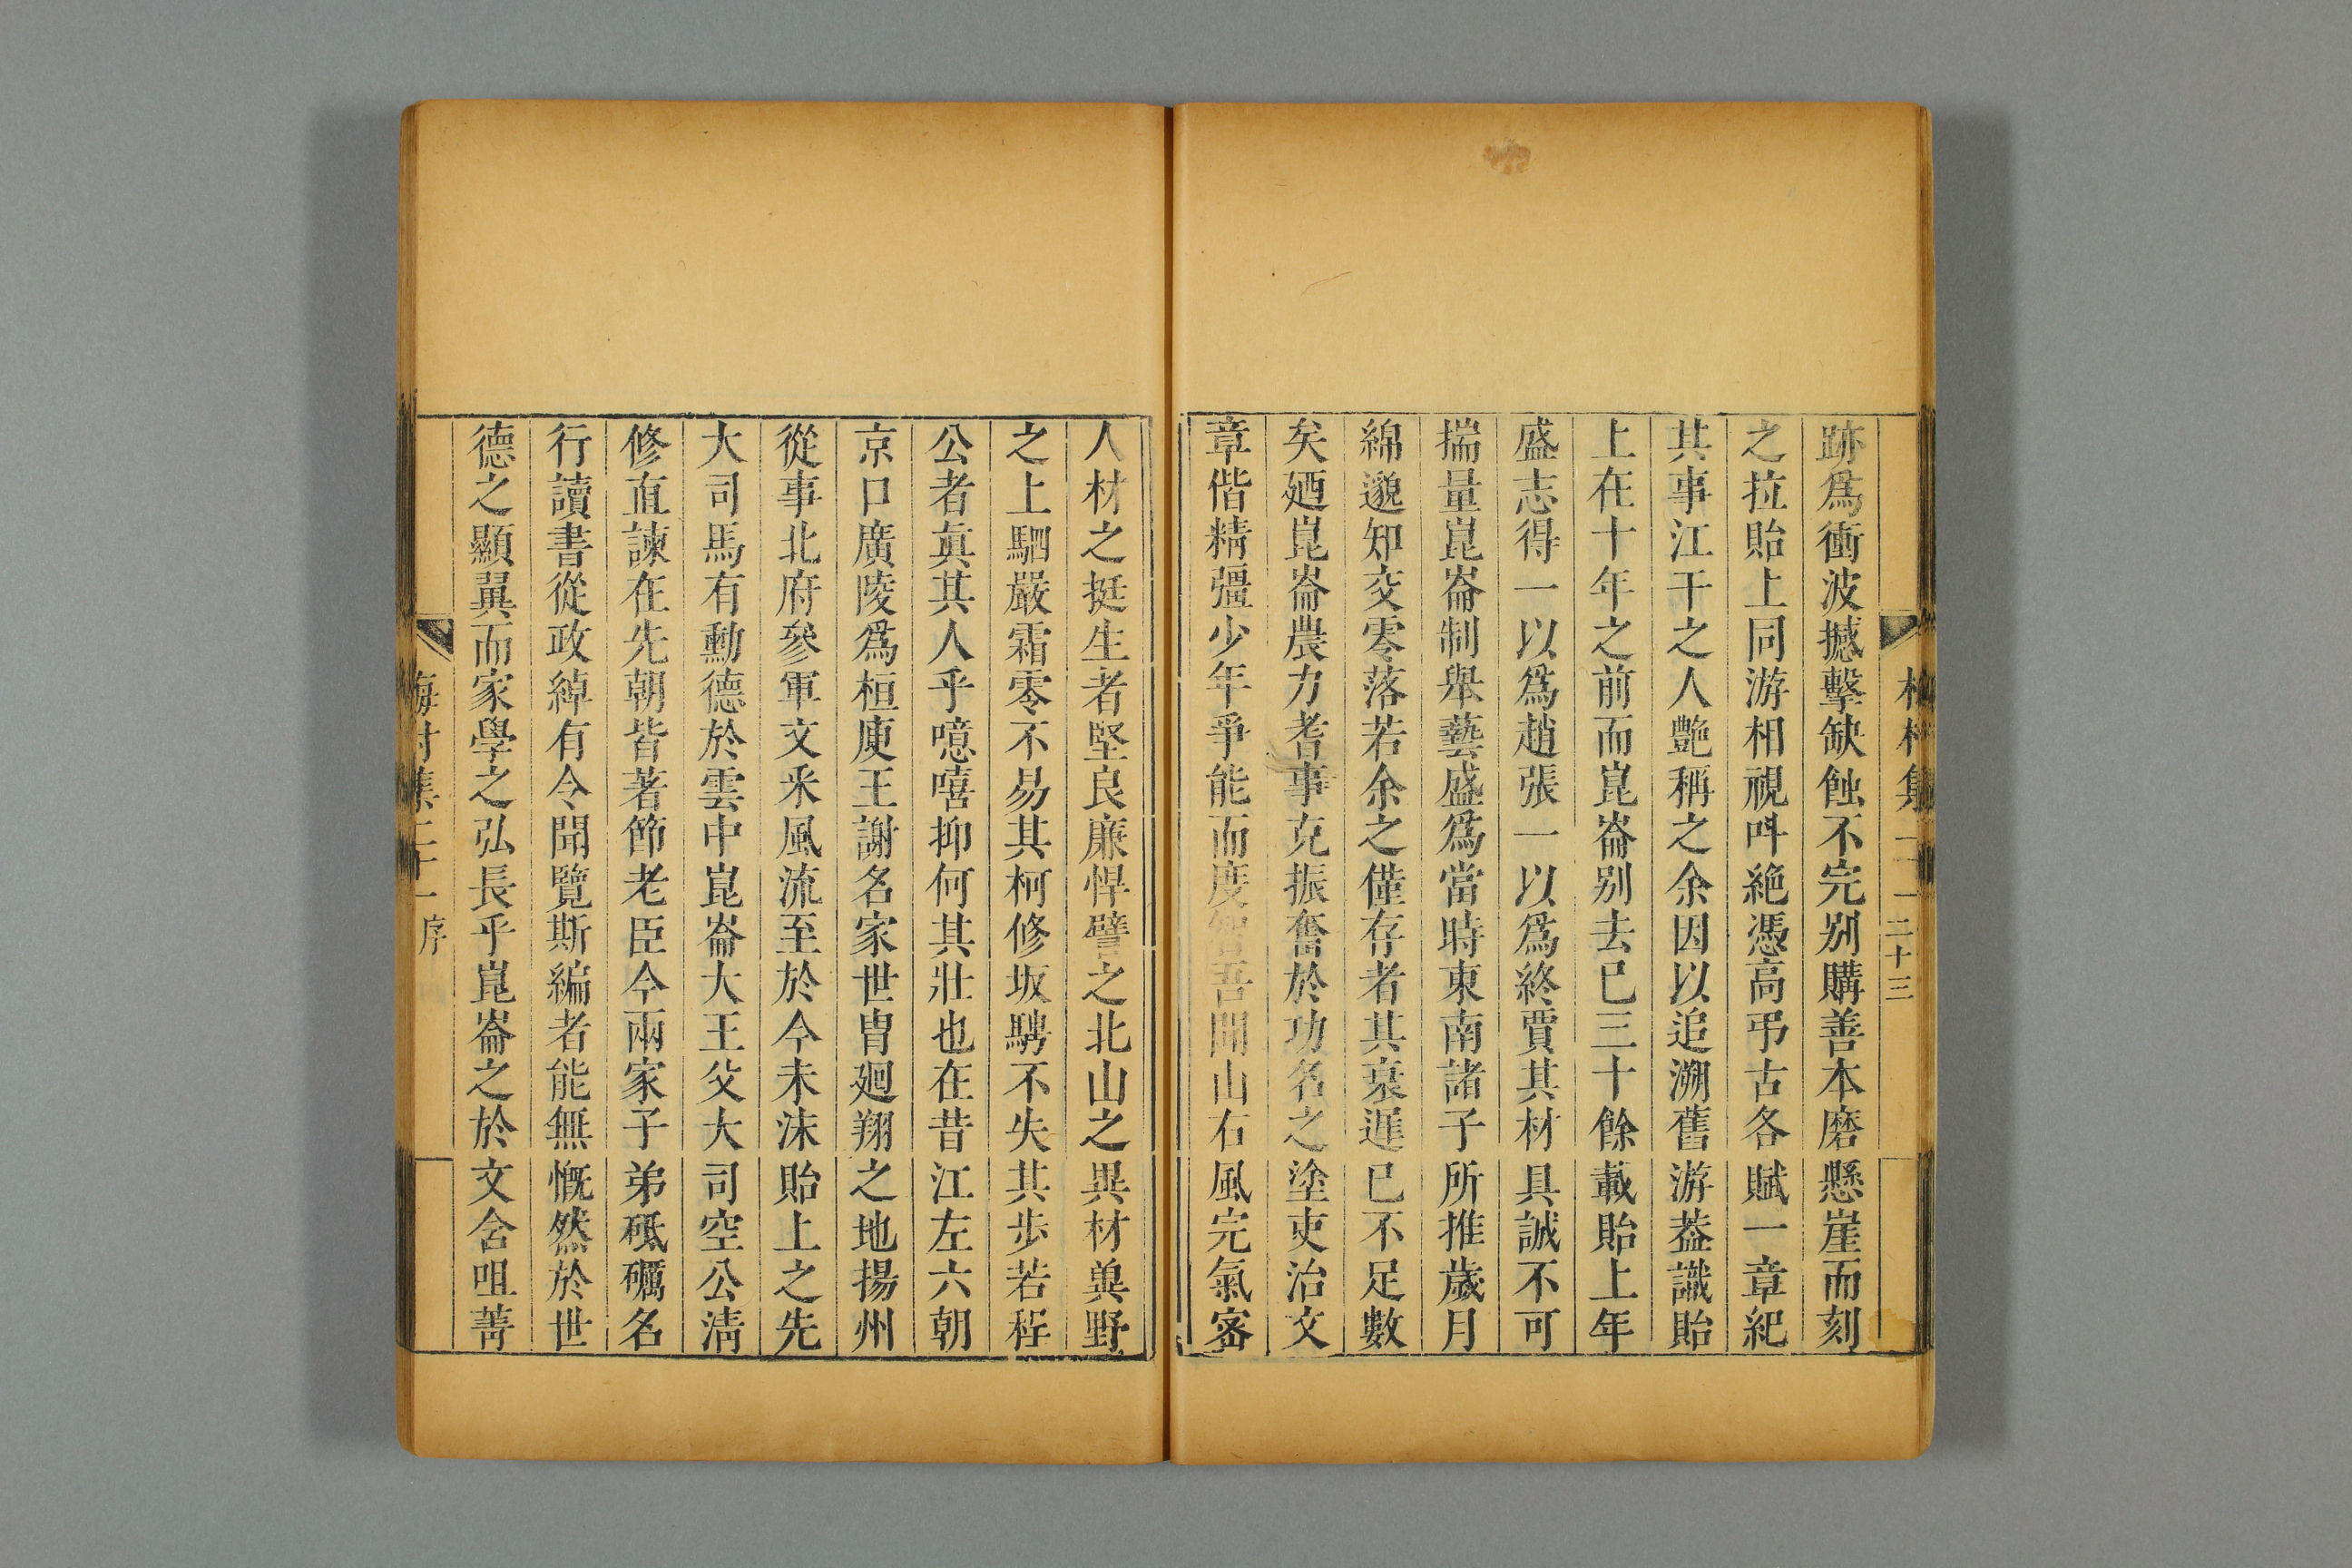 跡爲衝波撼擊缺蝕不完别購善本磨懸崖而刻
之拉貽上同游相視呌絶憑高弔古各賦一章紀
其事江干之人艷稱之余因以追溯舊游葢識貽
上在十年之前而崑崙别去已三十餘載貽上年
盛志得一以爲趙張一以爲終賈其材具誠不可
揣量崑崙制舉藝盛爲當時東南諸子所推歲月
綿邈知交零落若余之僅存者其衰遲已不足數
矣廼崑崙農力耆事克振奮於功名之塗吏治文
章偕精彊少年爭能而度智吾聞山右風完氣密
人材之挺生者堅良廉悍譬之北山之異材兾野
之上駟嚴霜零不易其柯修坂騁不失其步若程
公者眞其人乎噫嘻抑何其壯也在昔江左六朝
京口廣陵爲桓庾王謝名家世胄廻翔之地揚州
從事北府參軍文釆風流至於今未沫貽上之先
大司馬有勳德於雲中崑崙大王父大司空公淸
修直諫在先朝皆著節老臣今兩家子弟砥礪名
行讀書從政綽有令聞覽斯編者能無慨然於世
德之顯翼而家學之弘長乎崑崙之於文含咀菁
梅村集二十一序
二十三